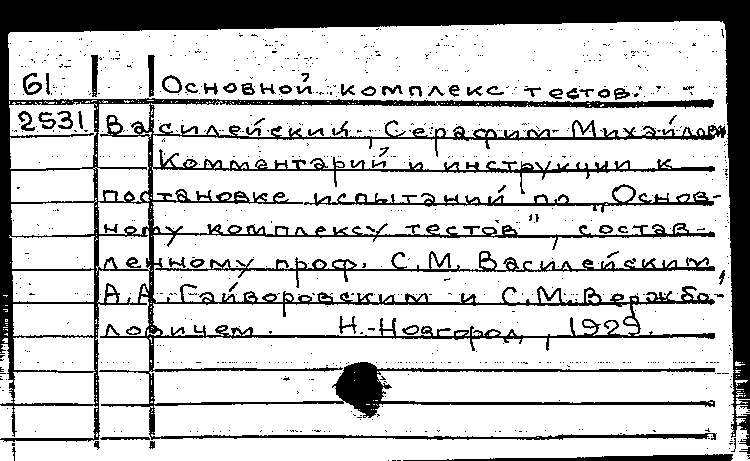 61 Основной комплекс тестов.
2531 Василейский, Серафим Михайлович
Комментарий и инструкции к
постановке испытаний по „Основ-
ному комплексу тестов", состав-
ленному проф. С.М. Василейским,
А.А. Гайворовским и С.М. Вержбо-
ловичем. Н.-Новгород, 1929.